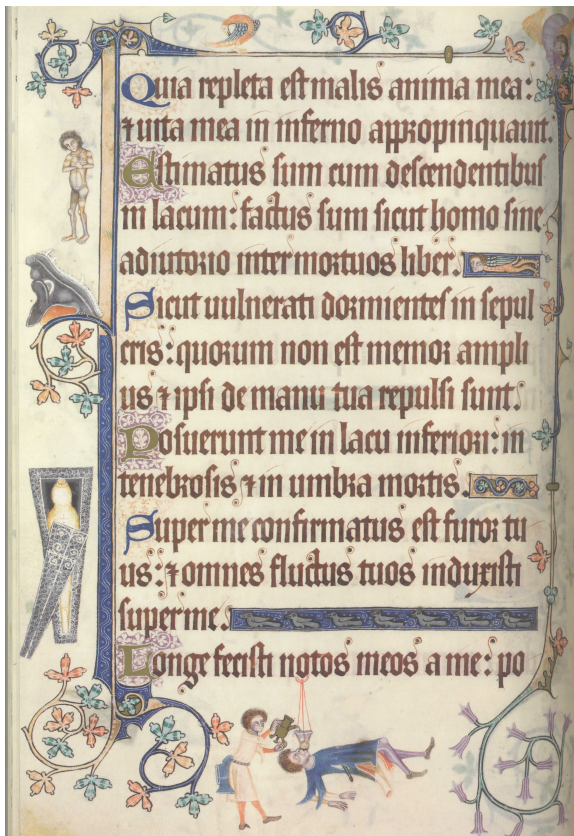 Quia repleta est malis anima mea:
⁊ uita mea in inferno appropinquauit.
Estimatus sum cum descendentibus
in lacum: factus sum sicut homo sine
adiutorio inter mortuos liber.
Sicut uulnerati dormientes in sepul
cris: quorum non est memor ampli
us ⁊ ipsi de manu tua repulsi sunt.
Posuerunt me in lacu inferiori: in
tenebrosis ⁊ in umbra mortis.
Super me confirmatus est furor tu
us: ⁊ omnes fluctus tuos induxisti
super me.
Longe fecisti notos meos a me: po